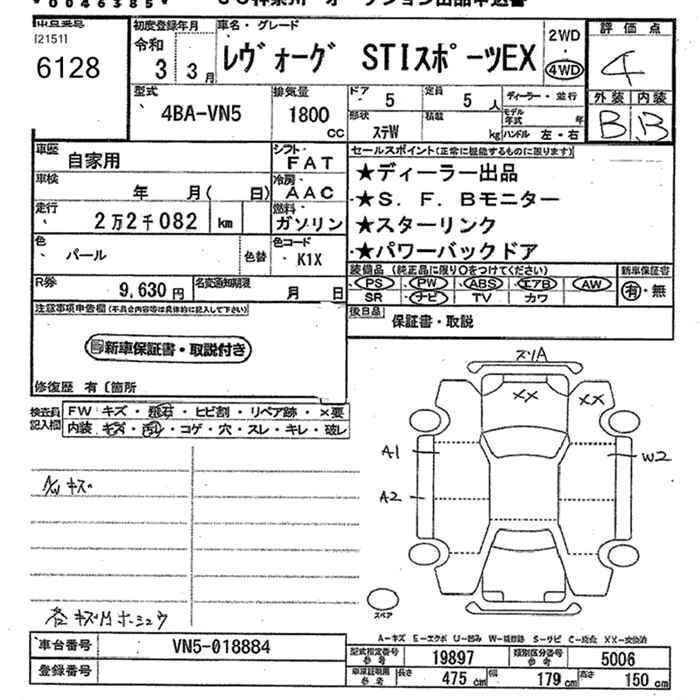 00046385
[2151]
6128
初度登録年月
令和
3 3月
車名・グレード
レヴォーグ STIスポーツEX
2WD
・
4WD
評価点
4
外装 内装
B B
型式
4BA-VN5
排気量
1800
cc
ドア
5
定員
5 人
形状
ステW
積載
kg
ディーラー・並行
モデル年式
年
ハンドル 左・右
車歴
自家用
シフト
FAT
車検
年 月( 日)
冷房
AAC
走行
2万2千082 km
燃料
ガソリン
色
パール
色替
色コード
K1X
R券
9,630円
名変通知期限
月 日
セールスポイント(正常に機能するものに限ります)
★ディーラー出品
★S.F.Bモニター
★スターリンク
★パワーバックドア
装備品(純正品に限り○をつけてください)
PS PW ABS エアB AW
SR ナビ TV カワ
新車保証書
有・無
後日品
保証書・取説
注意事項申告欄(不具合内容等は具体的に記入して下さい)
新車保証書・取説付き
修復歴 有〔箇所
検査員記入欄
FW キズ・飛石・ヒビ割・リペア跡・×要
内装 キズ・汚れ・コゲ・穴・スレ・キレ・破レ
A/W キズ
スリA
XX
XX
A1
W2
A2
スペア
各キズ小ホシュウ
A-キズ E-エクボ U-凹み W-補修跡 S-サビ C-腐食 XX-交換済
車台番号
VN5-018884
登録番号
型式指定番号
参考
19897
類別区分番号
参考
5006
車検証明用
参考
長さ
475 cm
幅
179 cm
高さ
150 cm